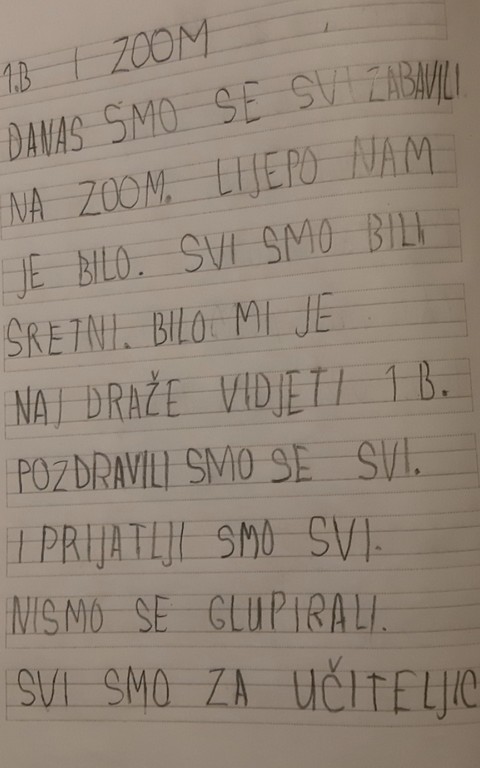 1.B I ZOOM
DANAS SMO SE SVI ZABAVILI
NA ZOOM. LIJEPO NAM
JE BILO. SVI SMO BILI
SRETNI. BILO MI JE
NAJ DRAŽE VIDJETI 1 B.
POZDRAVILI SMO SE SVI.
I PRIJATLJI SMO SVI.
NISMO SE GLUPIRALI.
SVI SMO ZA UČITELJIC